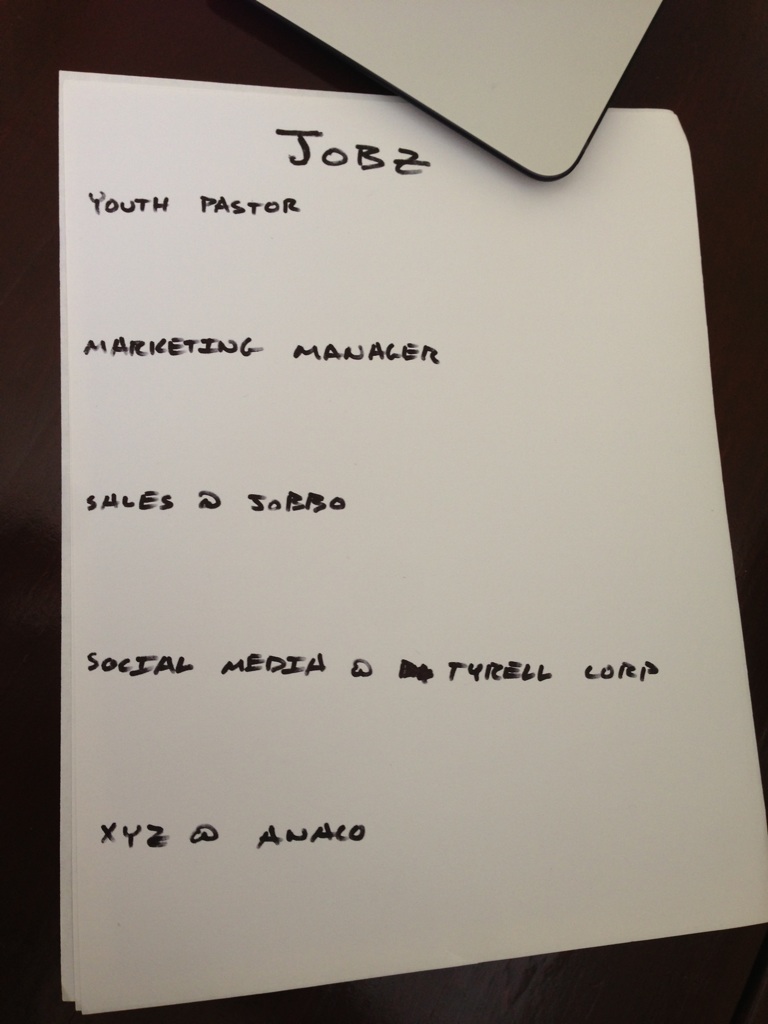 JOBZ
YOUTH PASTOR
MARKETING MANAGER
SALES @ JOBBO
SOCIAL MEDIA @ TYRELL CORP
XYZ @ ANACO